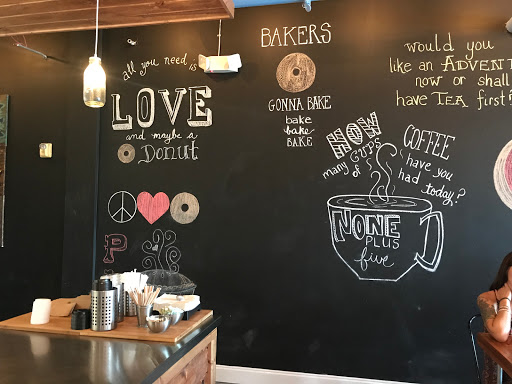 all you need is
LOVE
and maybe a
DONUT
BAKERS
GONNA BAKE
bake
bake
BAKE
would you
like an ADVENT
now or shall
have TEA first?
HOW
many cups
of
COFFEE
have you
had today?
NONE
PLUS
five
P